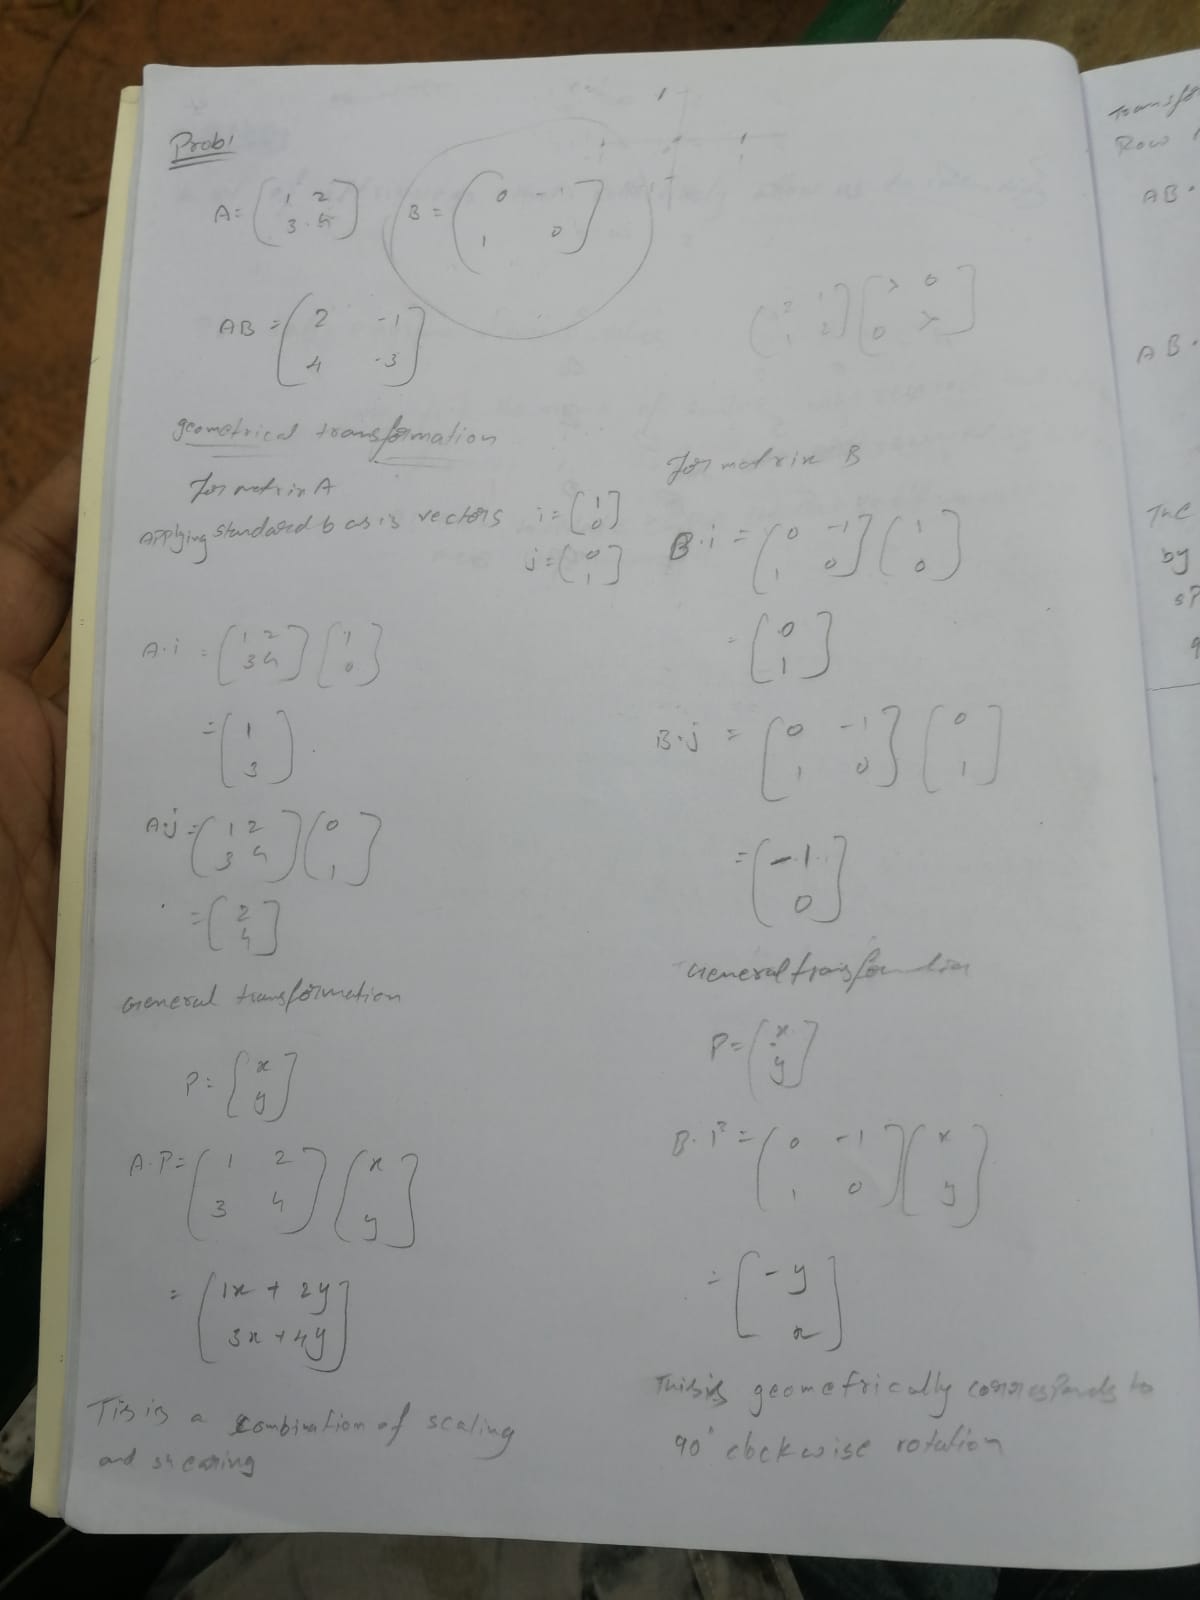 Prob1
A = [1 2
3 4] B = [0 -1
1 0]
AB = [2 -1
4 -3]
[2 1
1 2] [λ 0
0 λ]
geometrical transformation
for matrix A
Applying standard basis vectors i = [1
0]
j = [0
1]
A·i = [1 2
3 4] [1
0]
= [1
3]
A·j = [1 2
3 4] [0
1]
= [2
4]
General transformation
P = [x
y]
A·P = [1 2
3 4] [x
y]
= [1x + 2y
3x + 4y]
Tis is a combination of scaling
and shearing
for matrix B
B·i = [0 -1
1 0] [1
0]
= [0
1]
B·j = [0 -1
1 0] [0
1]
= [-1
0]
General transformation
P = [x
y]
B·P = [0 -1
1 0] [x
y]
= [-y
x]
This is geometrically corresponds to
90° clockwise rotation
Row
AB
AB
The
by